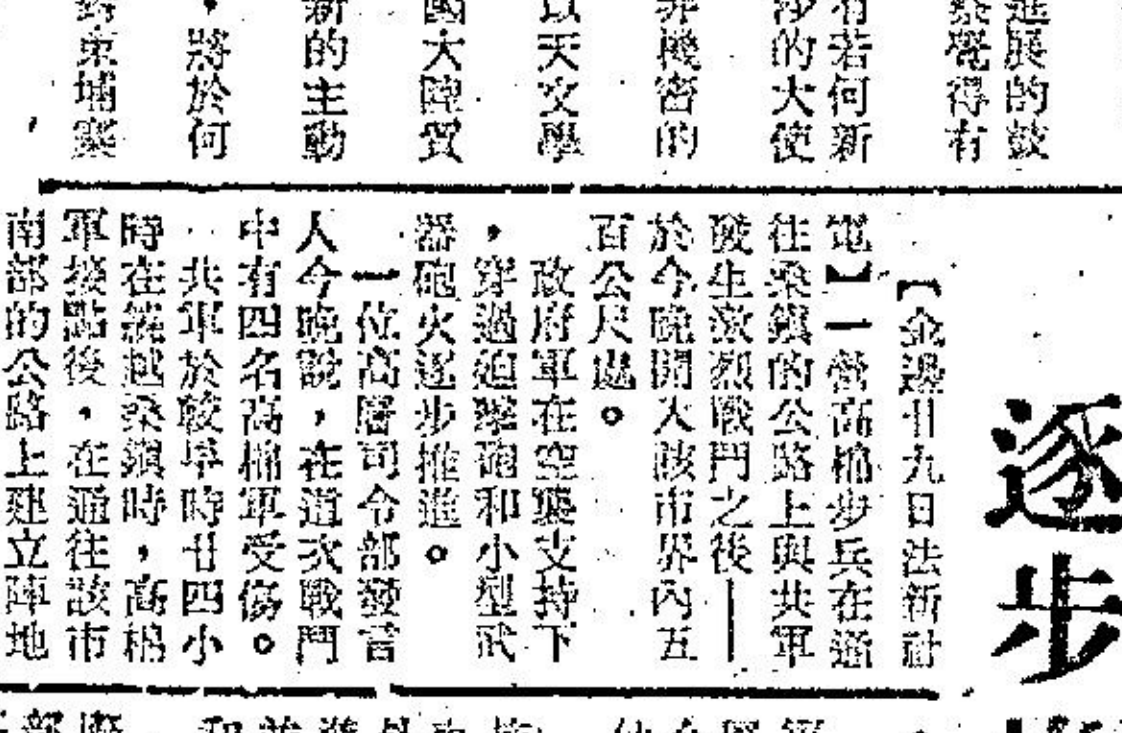 逐步
進展的鼓
察覺得有
有若何新
沙的大使
界機密的
以天文學
國大陸質
新的主動
，將於何
跨柬埔寨
【金邊廿九日法新社
電】一營高棉步兵在通
往桑鎮的公路上與共軍
發生激烈戰鬥之後——
於今晚開入該市界內五
百公尺處。
政府軍在空襲支持下
，穿過迫擊砲和小型武
器砲火逐步推進。
一位高層司令部發言
人今晚說，在這次戰鬥
中有四名高棉軍受傷。
共軍於較早時廿四小
時在繞越桑鎮時，高棉
軍接點後，在通往該市
南部的公路上建立陣地